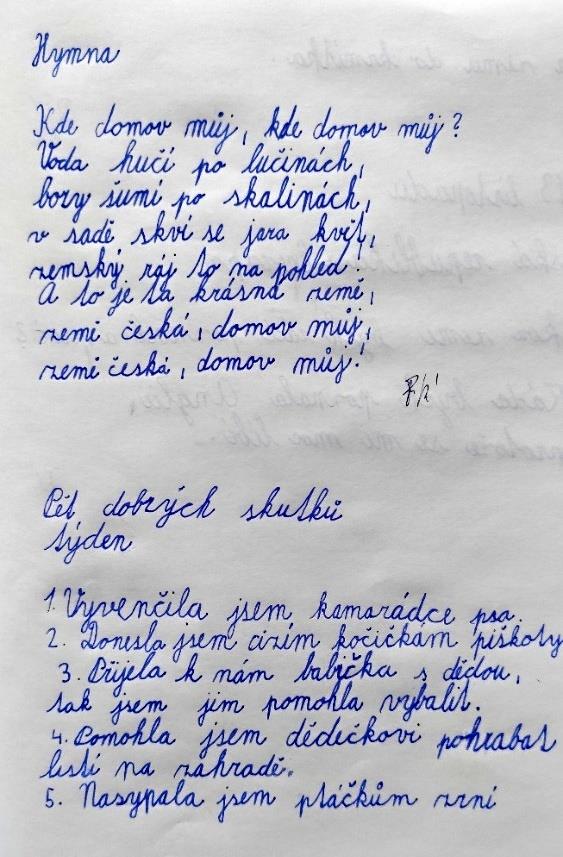 Hymna
Kde domov můj, kde domov můj?
Voda hučí po lučinách,
bory šumí po skalinách,
v sadě skví se jara květ,
zemský ráj to na pohled!
A to je ta krásná země,
země česká, domov můj,
země česká, domov můj!
Pět dobrých skutků
týden
1. Vyvenčila jsem kamarádce psa.
2. Donesla jsem cizím kočičkám piškoty
3. Přijela k nám babička s dědou,
tak jsem jim pomohla vybalit.
4. Pomohla jsem dědečkovi pohrabat
listí na zahradě.
5. Nasypala jsem ptáčkům zrní